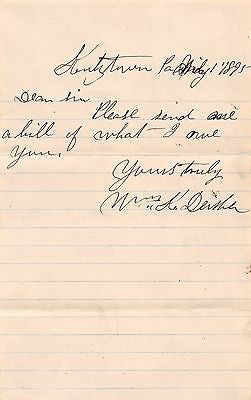 Kutztown Pa July 1 1895
Dear sir
Please send me
a bill of what I owe
You,
Yours truly
Wm K. Deisher